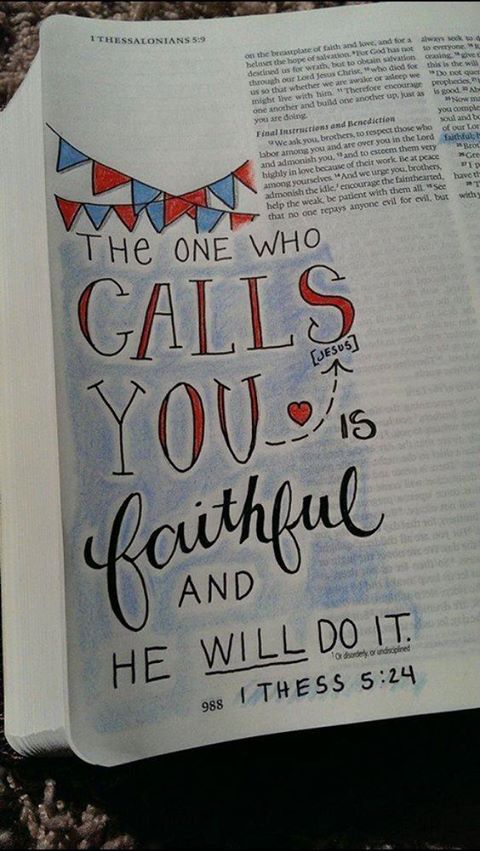 1 THESSALONIANS 5:9
on the breastplate of faith and love, and for a
helmet the hope of salvation. ⁹For God has not
destined us for wrath, but to obtain salvation
through our Lord Jesus Christ, ¹⁰who died for
us so that whether we are awake or asleep we
might live with him. ¹¹Therefore encourage
one another and build one another up, just as
you are doing.
Final Instructions and Benediction
¹²We ask you, brothers, to respect those who
labor among you and are over you in the Lord
and admonish you, ¹³and to esteem them very
highly in love because of their work. Be at peace
among yourselves. ¹⁴And we urge you, brothers,
admonish the idle,¹ encourage the fainthearted,
help the weak, be patient with them all. ¹⁵See
that no one repays anyone evil for evil, but
always seek to
to everyone.
ceasing,
this is the will
Do not
prophecies,
is good.
Now
you
soul and
of our Lor
faithful;
THE ONE WHO
CALLS
[JESUS]
YOU IS
faithful
AND
HE WILL DO IT.
¹ Or disorderly, or undisciplined
988 1 THESS 5:24